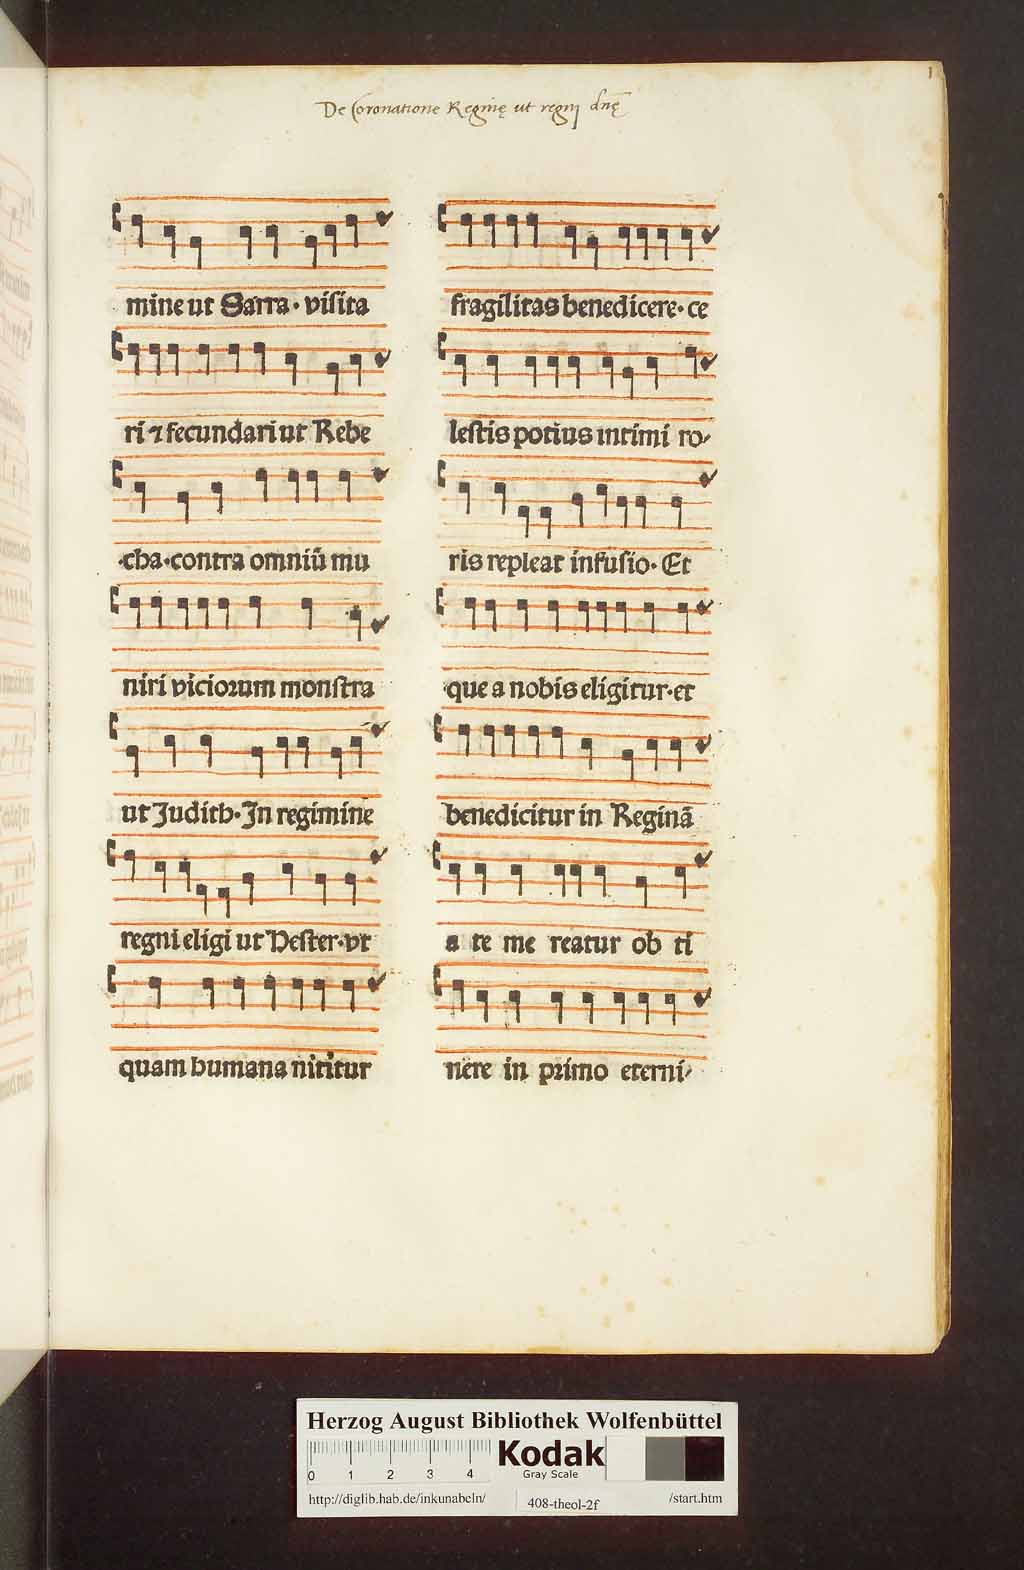 De Coronatione Reginę ut regni dnę
mine ut Sarra · visita
ri ⁊ fecundari ut Rebe
cha · contra omniū mu
niri viciorum monstra
ut Judith · In regimine
regni eligi ut Hester · vt
quam humana nititur
fragilitas benedicere · ce
lestis potius intimi ro⸗
ris repleat infusio · Et
que a nobis eligitur · et
benedicitur in Reginā
a te me reatur ob ti
nere in primo eterni⸗
Herzog August Bibliothek Wolfenbüttel
0 1 2 3 4
Kodak
Gray Scale
http://diglib.hab.de/inkunabeln/ 408-theol-2f /start.htm